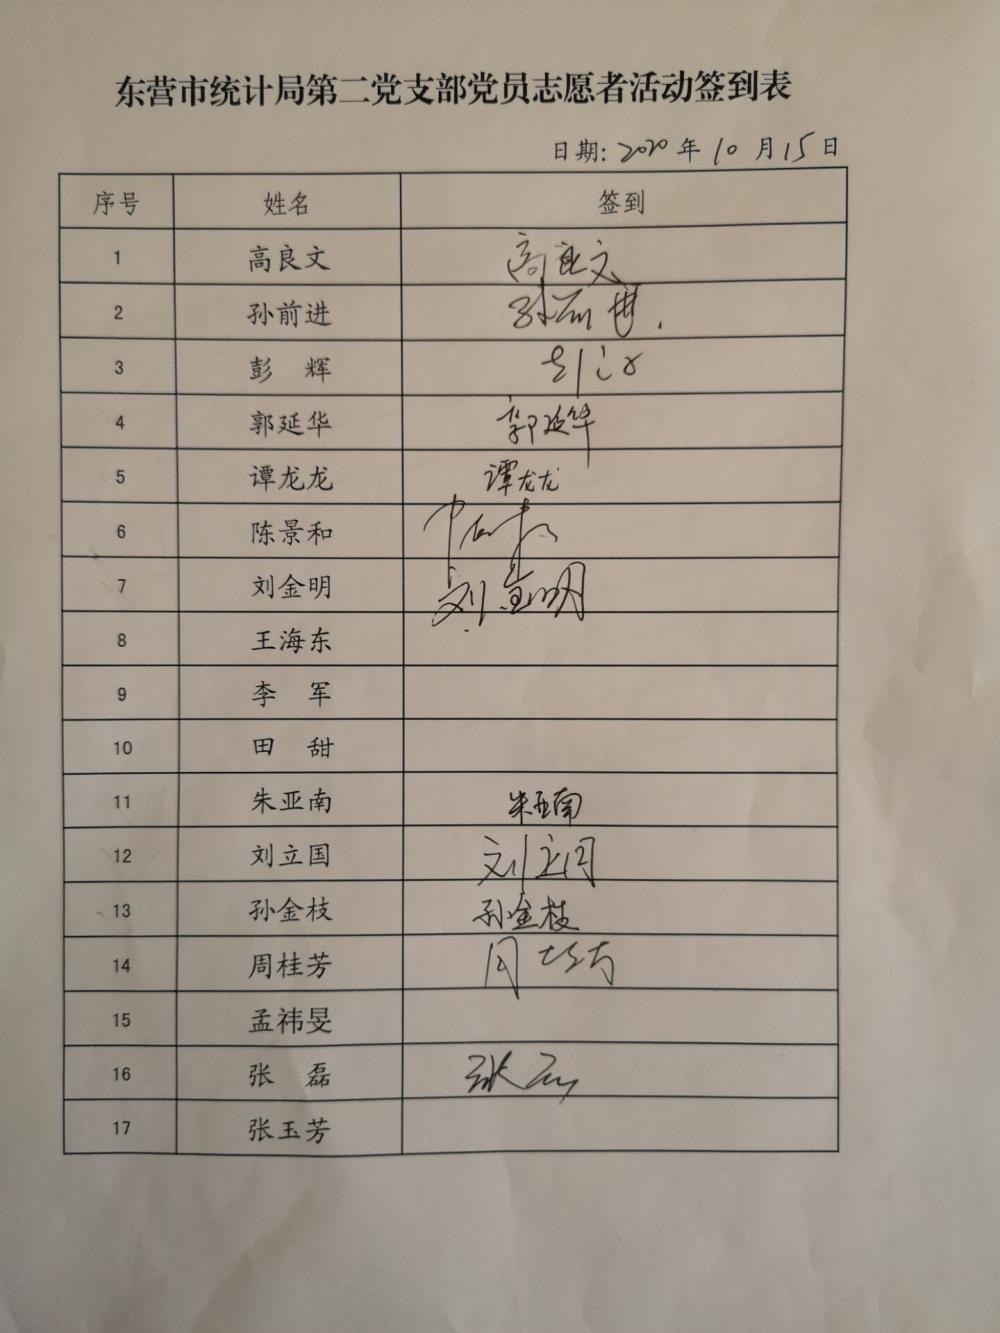 东营市统计局第二党支部党员志愿者活动签到表
日期: 2020 年 10 月 15 日
序号 姓名 签到
1 高良文 高良文
2 孙前进 孙前进
3 彭 辉
4 郭延华 郭延华
5 谭龙龙 谭龙龙
6 陈景和
7 刘金明 刘金明
8 王海东
9 李 军
10 田 甜
11 朱亚南 朱亚南
12 刘立国 刘立国
13 孙金枝 孙金枝
14 周桂芳 周桂芳
15 孟祎旻
16 张 磊 张磊
17 张玉芳